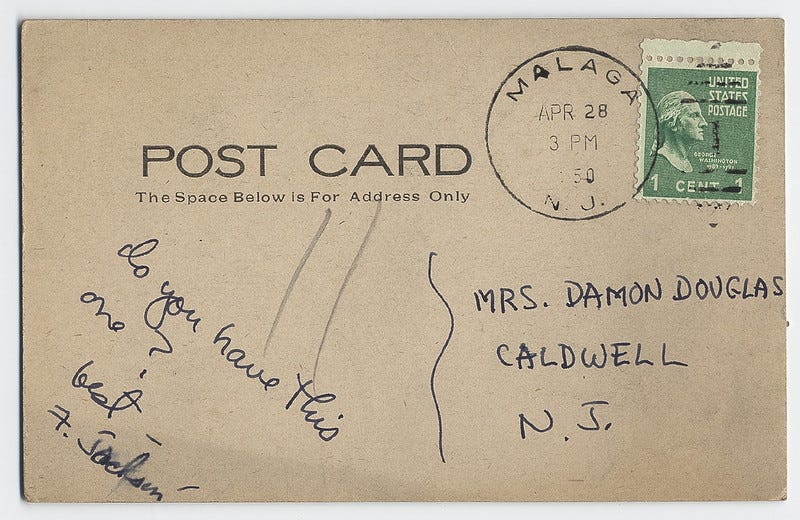 MALAGA
APR 28
3 PM
50
N. J.
UNITED
STATES
POSTAGE
GEORGE
WASHINGTON
1 CENT 1
POST CARD
The Space Below is For Address Only
do you have this
one ?
best —
F. Jackson —
MRS. DAMON DOUGLAS
CALDWELL
N. J.